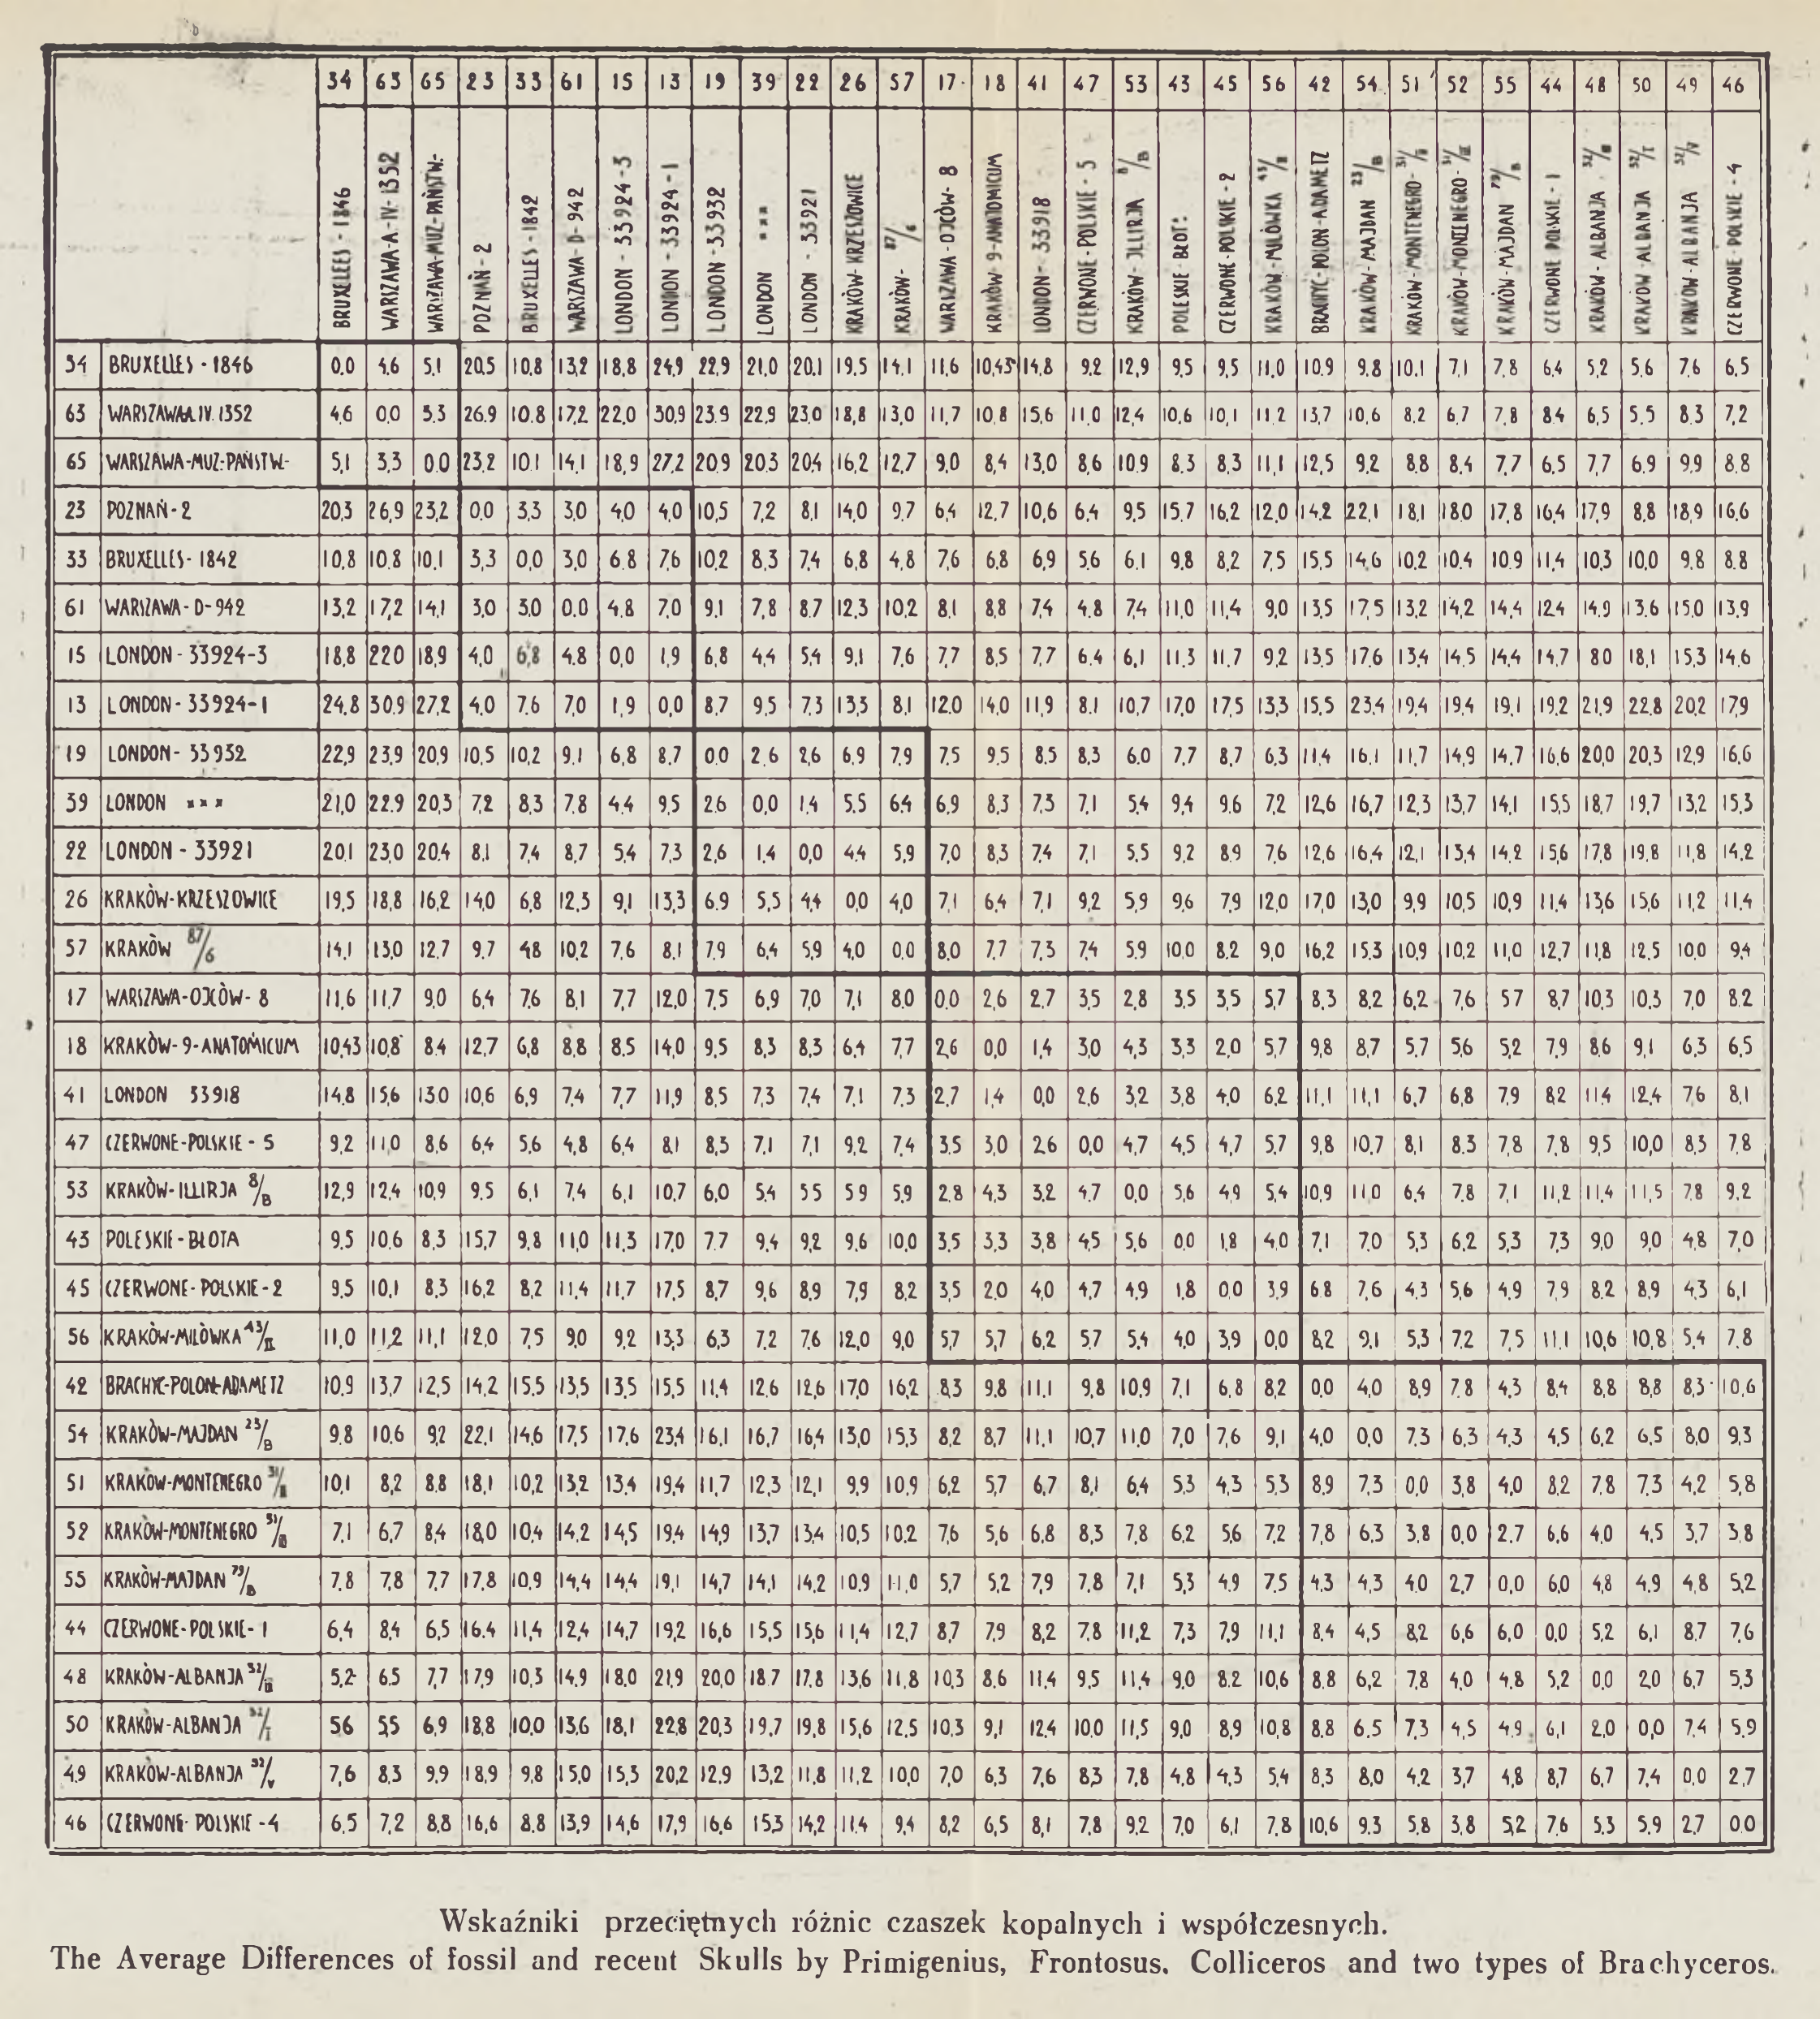 34 63 65 23 33 61 15 13 19 39 22 26 57 17 18 41 47 53 43 45 56 42 54 51 52 55 44 48 50 49 46
BRUXELLES - 1846
WARSZAWA-A-IV-1352
WARSZAWA-MUZ-PAŃSTW.-
POZNAŃ - 2
BRUXELLES - 1842
WARSZAWA - D - 942
LONDON - 33924 - 3
LONDON - 33924 - 1
LONDON - 33932
LONDON ***
LONDON - 33921
KRAKÒW-KRZESZOWICE
KRAKÒW- 87/6
WARSZAWA - OJCÒW - 8
KRAKÒW 9-ANATOMICUM
LONDON - 33918
CZERWONE - POLSKIE - 5
KRAKÒW - JLLIRJA 8/B
POLESKIE - BŁOT:
CZERWONE-POLSKIE - 2
KRAKÒW - MILÒWKA 43/II
BRACHYC-POLON-ADAMETZ
KRAKÒW - MAJDAN 23/B
KRAKÒW-MONTENEGRO- 31/II
KRAKÒW-MONTENEGRO- 31/III
KRAKÒW - MAJDAN 79/B
CZERWONE POLSKIE - 1
KRAKÒW - ALBANJA 32/III
KRAKÒW - ALBANJA 32/I
KRAKÒW - ALBANJA 32/V
CZERWONE - POLSKIE - 4
34 BRUXELLES - 1846 0,0 4,6 5,1 20,5 10,8 13,2 18,8 24,9 22,9 21,0 20,1 19,5 14,1 11,6 10,43 14,8 9,2 12,9 9,5 9,5 11,0 10,9 9,8 10,1 7,1 7,8 6,4 5,2 5,6 7,6 6,5
63 WARSZAWA A.IV.1352 4,6 0,0 3,3 26,9 10,8 17,2 22,0 30,9 23,9 22,9 23,0 18,8 13,0 11,7 10,8 15,6 11,0 12,4 10,6 10,1 11,2 13,7 10,6 8,2 6,7 7,8 8,4 6,5 5,5 8,3 7,2
65 WARSZAWA-MUZ-PAŃSTW.- 5,1 3,3 0,0 23,2 10,1 14,1 18,9 27,2 20,9 20,3 20,4 16,2 12,7 9,0 8,4 13,0 8,6 10,9 8,3 8,3 11,1 12,5 9,2 8,8 8,4 7,7 6,5 7,7 6,9 9,9 8,8
23 POZNAŃ - 2 20,3 26,9 23,2 0,0 3,3 3,0 4,0 4,0 10,5 7,2 8,1 14,0 9,7 6,4 12,7 10,6 6,4 9,5 15,7 16,2 12,0 14,2 22,1 18,1 18,0 17,8 16,4 17,9 8,8 18,9 16,6
33 BRUXELLES - 1842 10,8 10,8 10,1 3,3 0,0 3,0 6,8 7,6 10,2 8,3 7,4 6,8 4,8 7,6 6,8 6,9 5,6 6,1 9,8 8,2 7,5 15,5 14,6 10,2 10,4 10,9 11,4 10,3 10,0 9,8 8,8
61 WARSZAWA - D - 942 13,2 17,2 14,1 3,0 3,0 0,0 4,8 7,0 9,1 7,8 8,7 12,3 10,2 8,1 8,8 7,4 4,8 7,4 11,0 11,4 9,0 13,5 17,5 13,2 14,2 14,4 12,4 14,9 13,6 15,0 13,9
15 LONDON - 33924-3 18,8 22,0 18,9 4,0 6,8 4,8 0,0 1,9 6,8 4,4 5,4 9,1 7,6 7,7 8,5 7,7 6,4 6,1 11,3 11,7 9,2 13,5 17,6 13,4 14,5 14,4 14,7 8,0 18,1 15,3 14,6
13 LONDON - 33924-1 24,8 30,9 27,2 4,0 7,6 7,0 1,9 0,0 8,7 9,5 7,3 13,3 8,1 12,0 14,0 11,9 8,1 10,7 17,0 17,5 13,3 15,5 23,4 19,4 19,4 19,1 19,2 21,9 22,8 20,2 17,9
19 LONDON - 33932 22,9 23,9 20,9 10,5 10,2 9,1 6,8 8,7 0,0 2,6 2,6 6,9 7,9 7,5 9,5 8,5 8,3 6,0 7,7 8,7 6,3 11,4 16,1 11,7 14,9 14,7 16,6 20,0 20,3 12,9 16,6
39 LONDON *** 21,0 22,9 20,3 7,2 8,3 7,8 4,4 9,5 2,6 0,0 1,4 5,5 6,4 6,9 8,3 7,3 7,1 5,4 9,4 9,6 7,2 12,6 16,7 12,3 13,7 14,1 15,5 18,7 19,7 13,2 15,3
22 LONDON - 33921 20,1 23,0 20,4 8,1 7,4 8,7 5,4 7,3 2,6 1,4 0,0 4,4 5,9 7,0 8,3 7,4 7,1 5,5 9,2 8,9 7,6 12,6 16,4 12,1 13,4 14,2 15,6 17,8 19,8 11,8 14,2
26 KRAKÒW-KRZESZOWICE 19,5 18,8 16,2 14,0 6,8 12,3 9,1 13,3 6,9 5,5 4,4 0,0 4,0 7,1 6,4 7,1 9,2 5,9 9,6 7,9 12,0 17,0 13,0 9,9 10,5 10,9 11,4 13,6 15,6 11,2 11,4
57 KRAKÒW 87/6 14,1 13,0 12,7 9,7 4,8 10,2 7,6 8,1 7,9 6,4 5,9 4,0 0,0 8,0 7,7 7,3 7,4 5,9 10,0 8,2 9,0 16,2 15,3 10,9 10,2 11,0 12,7 11,8 12,5 10,0 9,4
17 WARSZAWA-OJCÒW - 8 11,6 11,7 9,0 6,4 7,6 8,1 7,7 12,0 7,5 6,9 7,0 7,1 8,0 0,0 2,6 2,7 3,5 2,8 3,5 3,5 5,7 8,3 8,2 6,2 7,6 5,7 8,7 10,3 10,3 7,0 8,2
18 KRAKÒW-9-ANATOMICUM 10,43 10,8 8,4 12,7 6,8 8,8 8,5 14,0 9,5 8,3 8,3 6,4 7,7 2,6 0,0 1,4 3,0 4,3 3,3 2,0 5,7 9,8 8,7 5,7 5,6 5,2 7,9 8,6 9,1 6,3 6,5
41 LONDON 33918 14,8 15,6 13,0 10,6 6,9 7,4 7,7 11,9 8,5 7,3 7,4 7,1 7,3 2,7 1,4 0,0 2,6 3,2 3,8 4,0 6,2 11,1 11,1 6,7 6,8 7,9 8,2 11,4 12,4 7,6 8,1
47 CZERWONE-POLSKIE - 5 9,2 11,0 8,6 6,4 5,6 4,8 6,4 8,1 8,3 7,1 7,1 9,2 7,4 3,5 3,0 2,6 0,0 4,7 4,5 4,7 5,7 9,8 10,7 8,1 8,3 7,8 7,8 9,5 10,0 8,3 7,8
53 KRAKÒW-ILLIRJA 8/B 12,9 12,4 10,9 9,5 6,1 7,4 6,1 10,7 6,0 5,4 5,5 5,9 5,9 2,8 4,3 3,2 4,7 0,0 5,6 4,9 5,4 10,9 11,0 6,4 7,8 7,1 11,2 11,4 11,5 7,8 9,2
43 POLESKIE - BŁOTA 9,5 10,6 8,3 15,7 9,8 11,0 11,3 17,0 7,7 9,4 9,2 9,6 10,0 3,5 3,3 3,8 4,5 5,6 0,0 1,8 4,0 7,1 7,0 5,3 6,2 5,3 7,3 9,0 9,0 4,8 7,0
45 CZERWONE - POLSKIE - 2 9,5 10,1 8,3 16,2 8,2 11,4 11,7 17,5 8,7 9,6 8,9 7,9 8,2 3,5 2,0 4,0 4,7 4,9 1,8 0,0 3,9 6,8 7,6 4,3 5,6 4,9 7,9 8,2 8,9 4,3 6,1
56 KRAKÒW-MILÒWKA 43/II 11,0 11,2 11,1 12,0 7,5 9,0 9,2 13,3 6,3 7,2 7,6 12,0 9,0 5,7 5,7 6,2 5,7 5,4 4,0 3,9 0,0 8,2 9,1 5,3 7,2 7,5 11,1 10,6 10,8 5,4 7,8
42 BRACHYC-POLON-ADAMETZ 10,9 13,7 12,5 14,2 15,5 13,5 13,5 15,5 11,4 12,6 12,6 17,0 16,2 8,3 9,8 11,1 9,8 10,9 7,1 6,8 8,2 0,0 4,0 8,9 7,8 4,3 8,4 8,8 8,8 8,3 10,6
54 KRAKÒW-MAJDAN 23/B 9,8 10,6 9,2 22,1 14,6 17,5 17,6 23,4 16,1 16,7 16,4 13,0 15,3 8,2 8,7 11,1 10,7 11,0 7,0 7,6 9,1 4,0 0,0 7,3 6,3 4,3 4,5 6,2 6,5 8,0 9,3
51 KRAKÒW-MONTENEGRO 31/II 10,1 8,2 8,8 18,1 10,2 13,2 13,4 19,4 11,7 12,3 12,1 9,9 10,9 6,2 5,7 6,7 8,1 6,4 5,3 4,3 5,3 8,9 7,3 0,0 3,8 4,0 8,2 7,8 7,3 4,2 5,8
52 KRAKÒW-MONTENEGRO 31/III 7,1 6,7 8,4 18,0 10,4 14,2 14,5 19,4 14,9 13,7 13,4 10,5 10,2 7,6 5,6 6,8 8,3 7,8 6,2 5,6 7,2 7,8 6,3 3,8 0,0 2,7 6,6 4,0 4,5 3,7 3,8
55 KRAKÒW-MAJDAN 79/B 7,8 7,8 7,7 17,8 10,9 14,4 14,4 19,1 14,7 14,1 14,2 10,9 11,0 5,7 5,2 7,9 7,8 7,1 5,3 4,9 7,5 4,3 4,3 4,0 2,7 0,0 6,0 4,8 4,9 4,8 5,2
44 CZERWONE-POLSKIE- 1 6,4 8,4 6,5 16,4 11,4 12,4 14,7 19,2 16,6 15,5 15,6 11,4 12,7 8,7 7,9 8,2 7,8 11,2 7,3 7,9 11,1 8,4 4,5 8,2 6,6 6,0 0,0 5,2 6,1 8,7 7,6
48 KRAKÒW-ALBANJA 32/III 5,2 6,5 7,7 17,9 10,3 14,9 18,0 21,9 20,0 18,7 17,8 13,6 11,8 10,3 8,6 11,4 9,5 11,4 9,0 8,2 10,6 8,8 6,2 7,8 4,0 4,8 5,2 0,0 2,0 6,7 5,3
50 KRAKÒW-ALBANJA 32/I 5,6 5,5 6,9 18,8 10,0 13,6 18,1 22,8 20,3 19,7 19,8 15,6 12,5 10,3 9,1 12,4 10,0 11,5 9,0 8,9 10,8 8,8 6,5 7,3 4,5 4,9 6,1 2,0 0,0 7,4 5,9
49 KRAKÒW-ALBANJA 32/V 7,6 8,3 9,9 18,9 9,8 15,0 15,3 20,2 12,9 13,2 11,8 11,2 10,0 7,0 6,3 7,6 8,3 7,8 4,8 4,3 5,4 8,3 8,0 4,2 3,7 4,8 8,7 6,7 7,4 0,0 2,7
46 CZERWONE- POLSKIE -4 6,5 7,2 8,8 16,6 8,8 13,9 14,6 17,9 16,6 15,3 14,2 11,4 9,4 8,2 6,5 8,1 7,8 9,2 7,0 6,1 7,8 10,6 9,3 5,8 3,8 5,2 7,6 5,3 5,9 2,7 0,0
Wskaźniki przeciętnych różnic czaszek kopalnych i współczesnych.
The Average Differences of fossil and recent Skulls by Primigenius, Frontosus, Colliceros and two types of Brachyceros.